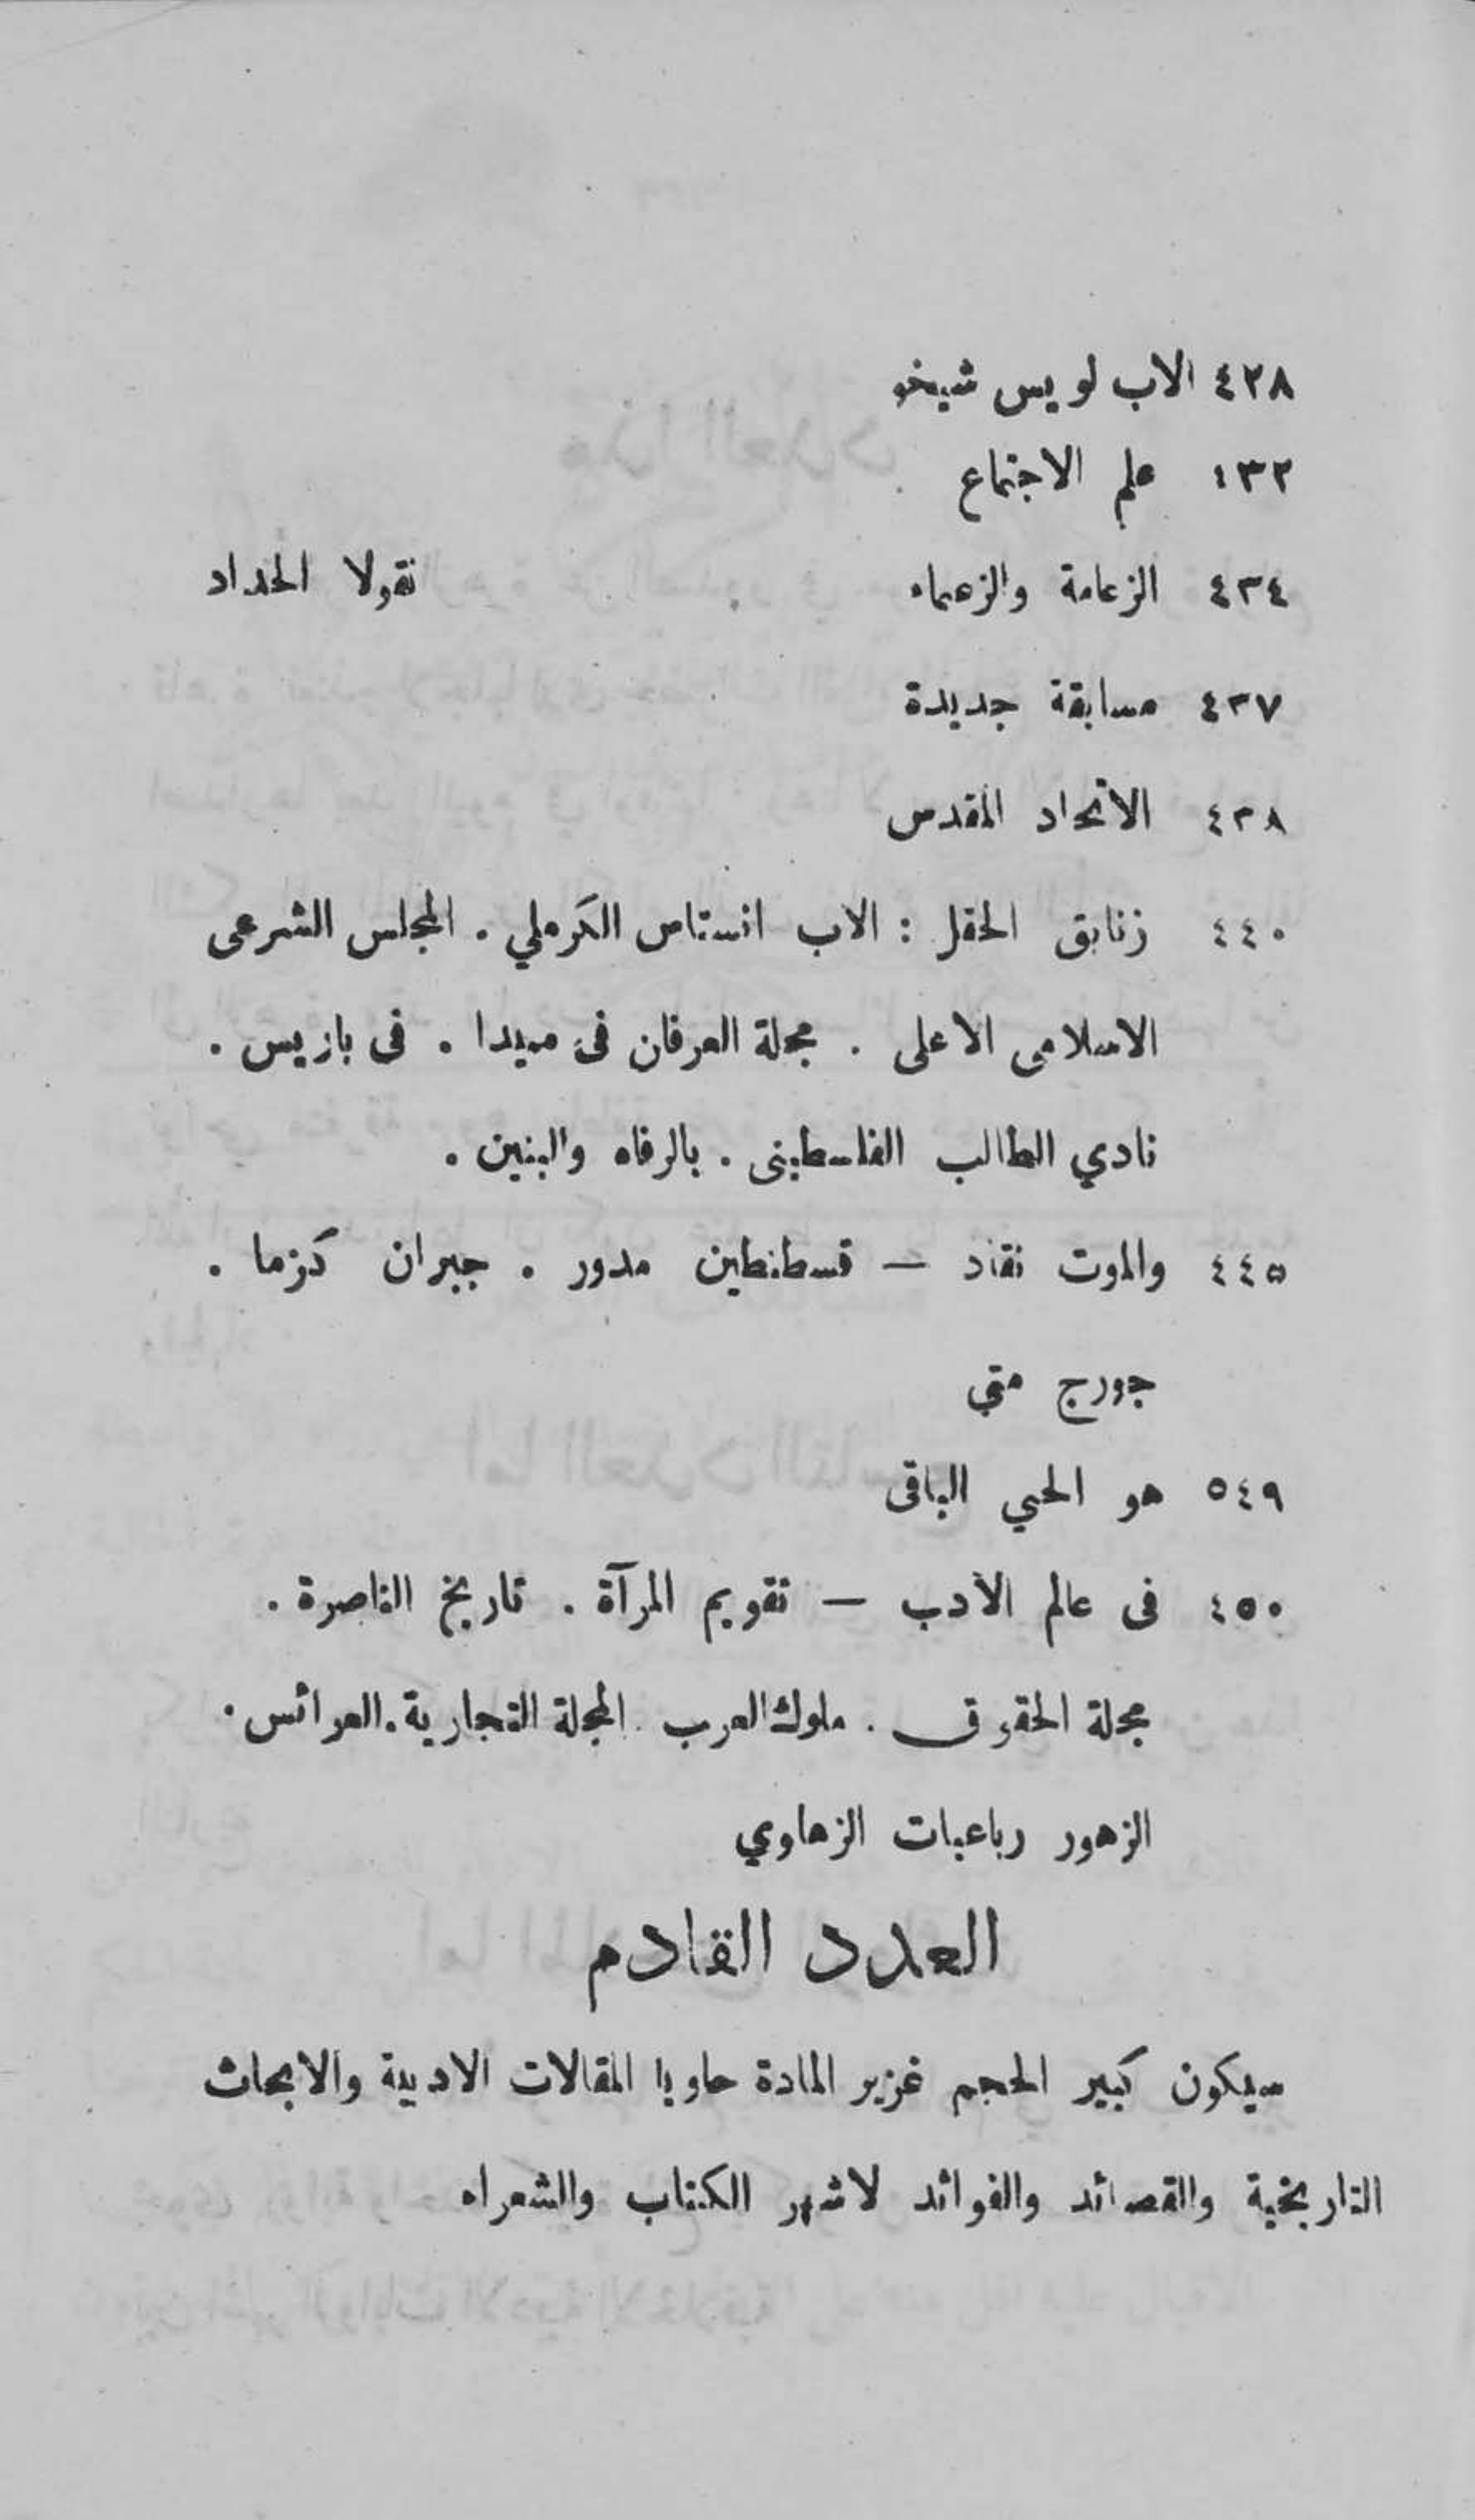 ٤٢٨ الاب لويس شيخو
٤٣٢ علم الاجتماع
٤٣٤ الزعامة والزعماء نقولا الحداد
٤٣٧ مسابقة جديدة
٤٣٨ الاتحاد المقدس
٤٤٠ زنابق الحقل : الاب انستاس الكرملي . المجلس الشرعى
الاسلامى الاعلى . مجلة العرفان فى صيدا . فى باريس .
نادي الطالب الفلسطينى . بالرفاه والبنين .
٤٤٥ والموت نقاد — قسطنطين مدور . جبران كزما .
جورج متي
٥٤٩ هو الحي الباقى
٤٥٠ فى عالم الأدب — تقويم المرآة . تاريخ الناصرة .
مجلة الحقوق . ملوك العرب . المجلة التجارية . العرائس .
الزهور رباعيات الزهاوي
العدد القادم
سيكون كبير الحجم غزير المادة حاويا المقالات الادبية والابحاث
التاريخية والقصائد والفوائد لاشهر الكتاب والشعراء